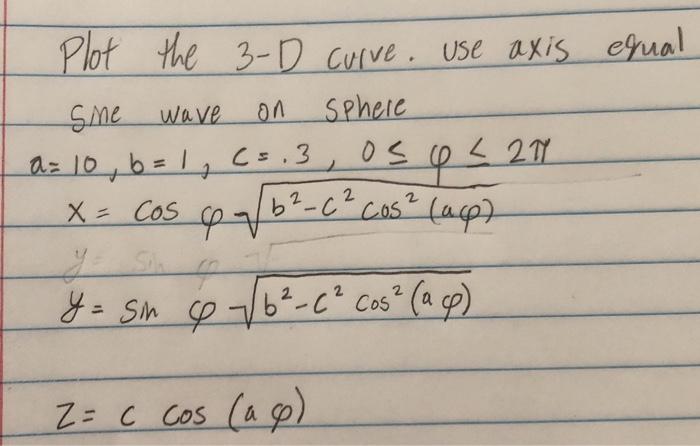 Plot the 3-D curve. use axis equal
Sine wave on sphere
a=10, b=1, c=.3, 0≤ φ ≤ 2π
x= cos φ √(b²-c² cos² (aφ))
y= sin φ √
y= sin φ √(b²-c² cos² (aφ))
z= c cos (aφ)